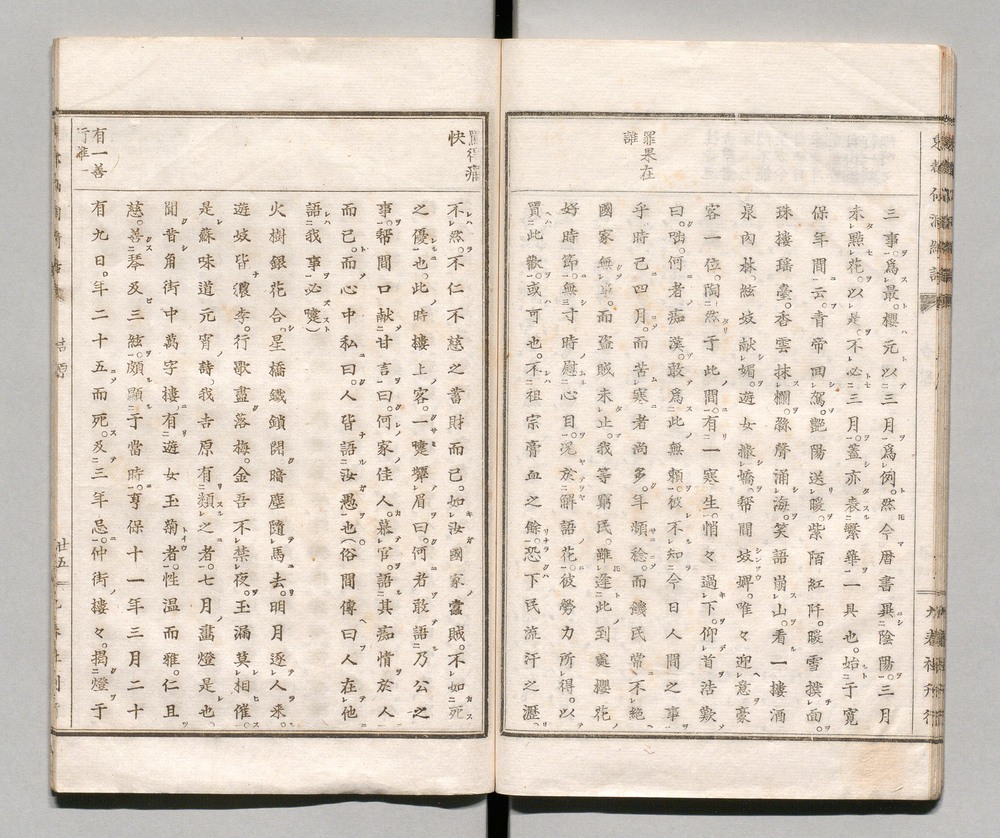 罪果在
誰
三事。爲最。櫻元以三月爲例。然今暦書異陰陽。三月
未點花。以是不必三月。蓋亦衰繁華一具也。始于寛
保年間云。青帝回駕。艶陽送暖。紫陌紅阡。暖雪撲面。
珠樓瑶臺。杏雲抹欄。絲聲涌海。笑語崩山。看一樓酒
泉肉林。絃妓献媚。遊女嬌。幇間妓婢。唯々迎意。豪
客一位。陶然于此間。有一寒生。悄々過下。仰首浩歎
曰。咄。何者痴漢。敢爲此無頼。彼不知今日人間之事
乎。時已四月。而苦寒者尚多。年頻稔。而饑民常不絶。
國家無事。而盗賊未止。我等窮民。雖逢此到處櫻花
好時節。無寸時慰心目。况於解語花。彼勞力所得。以
買此歡。或可也。不祖宗膏血之餘。恐下民流汗之瀝。
罵得痛
快
不然。不仁不慈之蓄財而已。如汝國家蠧賊。不如死
之優也。此時樓上客。一嚏顰眉曰。何者敢語乃公之
事。幇間口献甘言曰。何家佳人慕官。語其痴情於人
而已。而心中私曰。人皆語汝愚也(俗間傳曰人在他
語我事必嚏)
火樹銀花合。星橋鐵鎖開。暗塵隨馬去。明月逐人來。
遊妓皆濃李。行歌盡落梅。金吾不禁夜。玉漏莫相催。
是蘇味道元宵詩。我吉原有類之者。七月畵燈是也。
聞昔角街中萬字樓。有遊女玉菊者。性温而雅。仁且
慈。善琴及三絃。頗顯于當時。享保十一年三月二十
有九日。年二十五而死。及三年忌。仲街樓々。揭燈于
有一善
廿五
九春社刊行